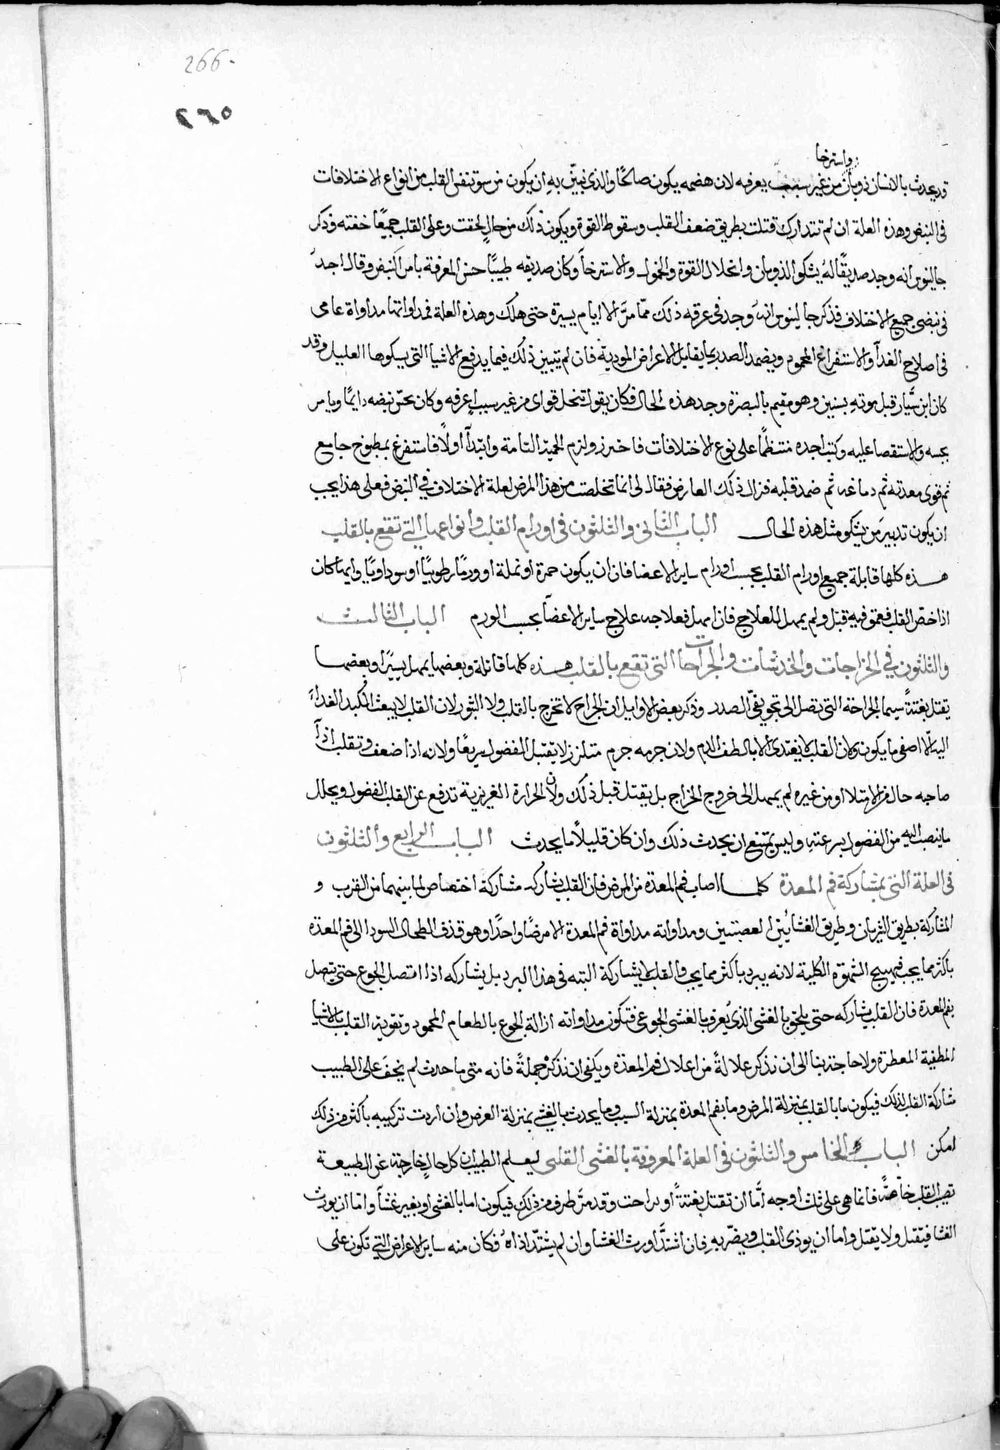 266.
٢٦٥
واسترخا
قد يحدث بالانسان ذوبان من غير سبب يعرفه لان هضمه يكون صالحا والذي نبين به ان يكون من سو تنفس القلب من انواع الاختلافات
في النبض وهذه العلة ان لم تتدارك قتلت بطريق ضعف القلب وسقوط القوة ويكون ذلك من حال لحقت وعلى القلب جميعا خفته وذكر
جالينوس انه وجد صديقا له يشكو الذوبان وانحلال القوة والخمول والاسترخا وكان صديقه طبيبا حسن المعرفة بامر النبض وقال اجد
في نبضي جميع الاختلاف فذكر جالينوس انه وجد في عرقه ذلك فما مر الا ايام يسيرة حتى هلك وهذه العلة فمداواتها مداواة عامي
في اصلاح الغدآ والاستفراغ المحمود ويضمد الصدر بما يقابل الاعراض الموذية فان لم يتبين ذلك فيما يدفع الاشيا التي يشكوها العليل وقد
كان ابن سيار قبل موته بسنين وهو مقيم بالبصرة وجد هذه الحال فكان يقول تنحل قواي من غير سبب اعرفه وكان يحس نبضه دايما ويامر
بجسه والاستقصا عليه وكنت اجده منتظما على نوع الاختلافات فاحترز ولزم الحمية التامة وابتدآ اولا فاستفرغ بمطبوخ جامع
ثم قوى معدته ثم دماغه ثم ضمد قلبه فزال ذلك العارض فقال لي انما تخلصت من هذا المرض لعلة الاختلاف في النبض فعلى هذا يجب
ان يكون تدبير من يشكو مثل هذه الحال الباب الثاني والثلثون في اورام القلب وانواعها التي تقع بالقلب
هذه كلها قابلة جميع اورام القلب بحسب اورام ساير الاعضا فان ان يكون حمرة او نملة او ورما رطوبيا او سوداويا وايما كان
اذا خص القلب فعمق فيه قتل ولم يمهل للعلاج فان امهل فعلاجه علاج ساير الاعضآ بحسب الورم الباب الثالث
والثلثون في الخراجات والخدشات والجراحات التي تقع بالقلب هذه كلها قاتلة وبعضها يمهل يسيرا وبعضها
يقتل بغتة سيما الجراحة التي تصل الى تجويفي الصدر وذكر بعض الاوايل ان الجراح لا تخرج بالقلب ولا البثور لان القلب لا يبعث الكبد الغدآ
اليه الا اصفى ما يكون وكان القلب لا يغتدي الا بالطف الدم ولان جرمه جرم متلزز لا يقبل الفضول سريعا ولانه اذا ضعف وتقلب اذا
صاحبه حال من الامتلا او من غيره لم يمهل الى خروج الخراج بل يقتل قبل ذلك ولان الحرارة الغريزية تدفع عن القلب الفضول ويحلل
ما ينصب اليه من الفضول بسرعته وليس يمتنع ان يحدث ذلك وان كان قليلا ما يحدث الباب الرابع والثلثون
في العلة التي بمشاركة فم المعدة كلما اصاب فم المعدة من المرض فان القلب يشاركه مشاركة اختصاص لما بينهما من القرب و
المشاركة بطريق الشريان وطريق الغشائين العصبتين ومداواته مداواة فم المعدة الا مرضا واحدا وهو قذف الطحال السودا الى فم المعدة
باكثر مما يجب فيهيج الشهوة الكلبية لانه يبرد باكثر مما يجب فالقلب لا يشاركه البته في هذا البرد بل يشاركه اذا اتصل الجوع حتى يتصل
بفم المعدة فان القلب يشاركه حتى يلحق بالغشي الذي يعرف بالغشي الجوعي فتكون مداواته ازالة الجوع بالطعام المحمود وتقوية القلب بالاشيا
المطفية المعطرة ولا حاجة بنا الى ان نذكر علالة من اعلال فم المعدة ويكفي ان نذكر جملة فانه متى ما حدث لم يخف على الطبيب
مشاركة القلب لذلك فيكون ما بالقلب بمنزلة المرض وما بفم المعدة بمنزلة السبب وما يحدث بالغشي بمنزلة العرض وان اردت تركيبه باكثر من ذلك
امكن الباب الخامس والثلثون في العلة المعروفة بالغشي القلبي ليعلم الطبيب ان كل حال خارجة عن الطبيعة
تصيب القلب خاصة فانما هي على ثلث اوجه اما ان تقتل بغتة او براحت وقد مر طرف من ذلك فيكون اما بالغشي او بغير غشا واما ان يورث
الغشا فيقتل ولا يقتل واما ان يوذي القلب ويضر به فان اشتد اورث الغشا وان لم يشتد اذاه فكان منه ساير الاعراض التي تكون على